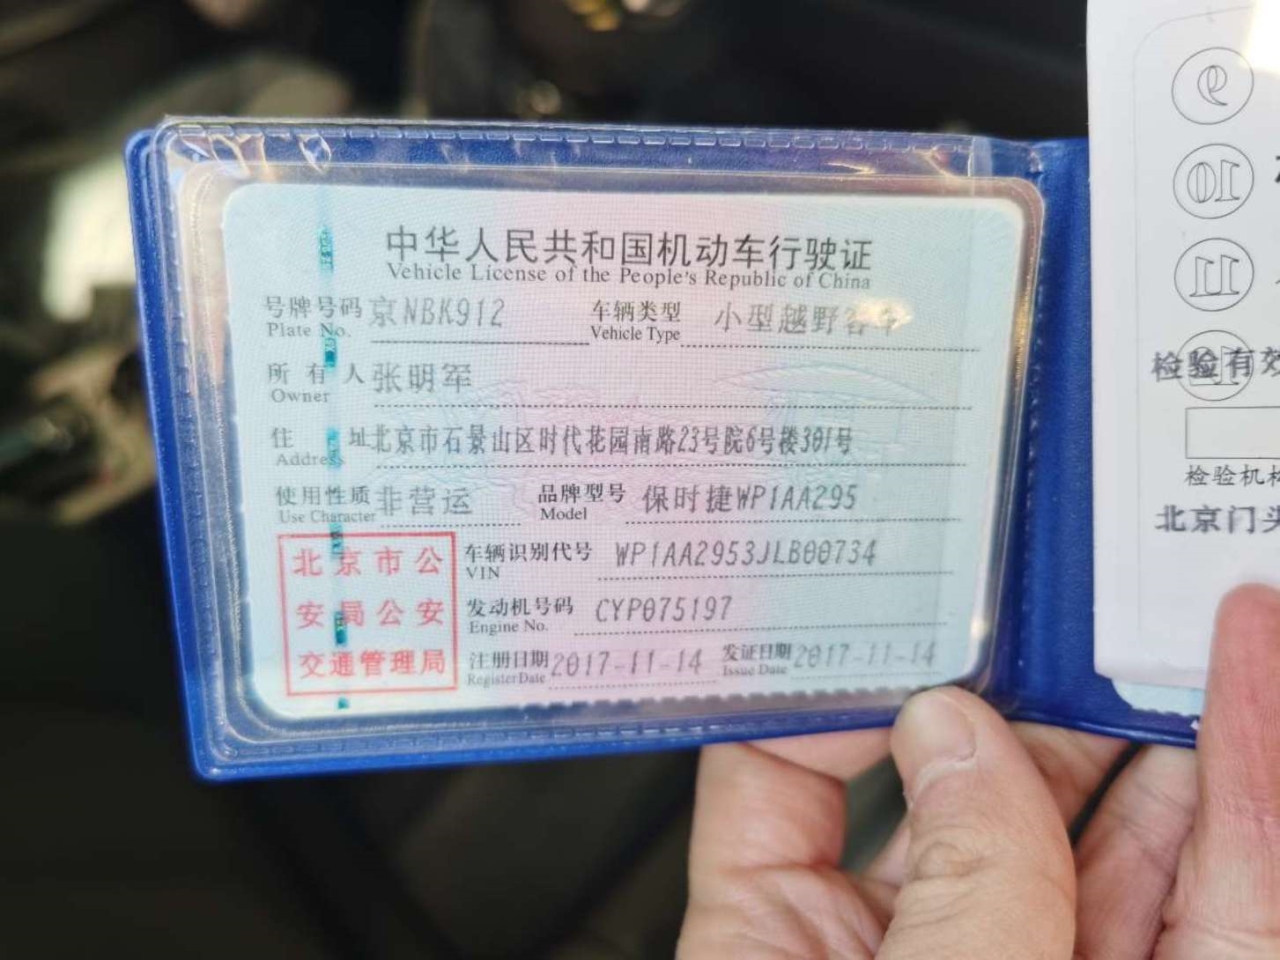 中华人民共和国机动车行驶证
Vehicle License of the People's Republic of China
号牌号码 京NBK912 车辆类型 小型越野客车
Plate No. Vehicle Type
所有人 张明军
Owner
住址 北京市石景山区时代花园南路23号院6号楼301号
Address
使用性质 非营运 品牌型号 保时捷WP1AA295
Use Character Model
北京市公 车辆识别代号 WP1AA2953JLB00734
VIN
安局公安 发动机号码 CYP075197
Engine No.
交通管理局 注册日期 2017-11-14 发证日期 2017-11-14
Register Date Issue Date
9
10
11
检验有效
检验机构
北京门头